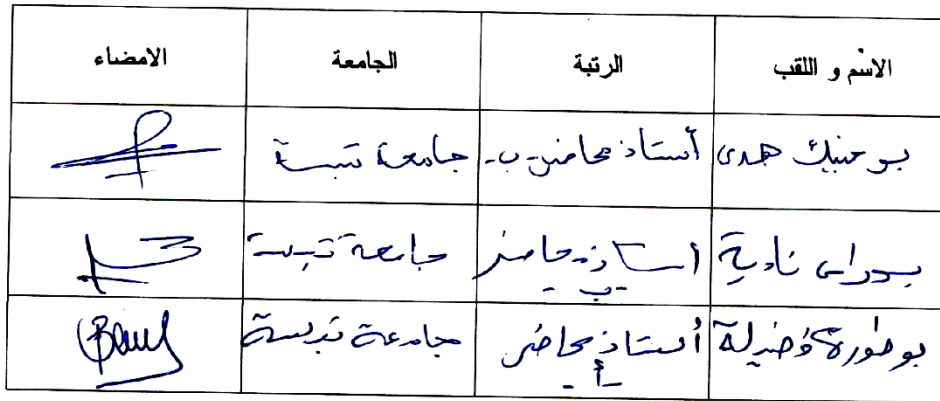 الاسم و اللقب الرتبة الجامعة الامضاء
بوخنيك هدى أستاذ محاضر -ب- جامعة تبسة
نادية أستاذ محاضر -ب- جامعة تبسة
بوطورة فضيلة أستاذ محاضر -أ- جامعة تبسة